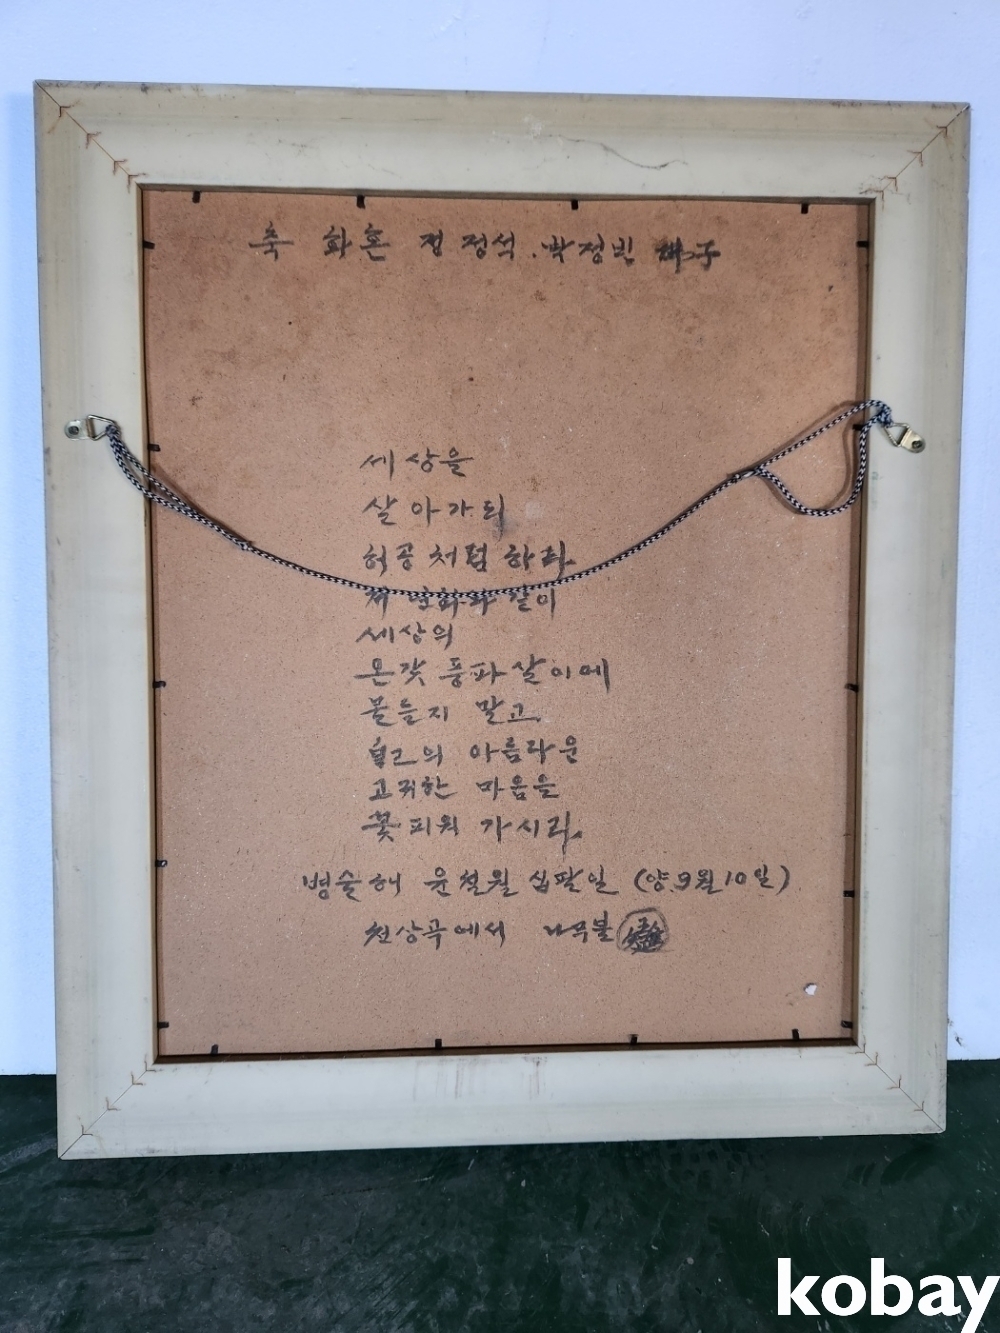 축 화혼 정 정석 . 박정빈 佛子
세상을
살아가되
허공처럼 하고
저 연화와 같이
세상의
온갖 풍파살이에
물들지 말고
自己의 아름다운
고귀한 마음을
꽃피워 가시라
병술해 윤칠월 십팔일 (양9월10일)
천상곡에서 나무불
kobay